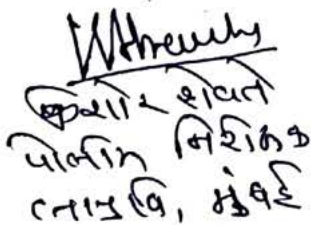 किशोर शेवते
पोलीस निरीक्षक
लाप्रवि, मुंबई